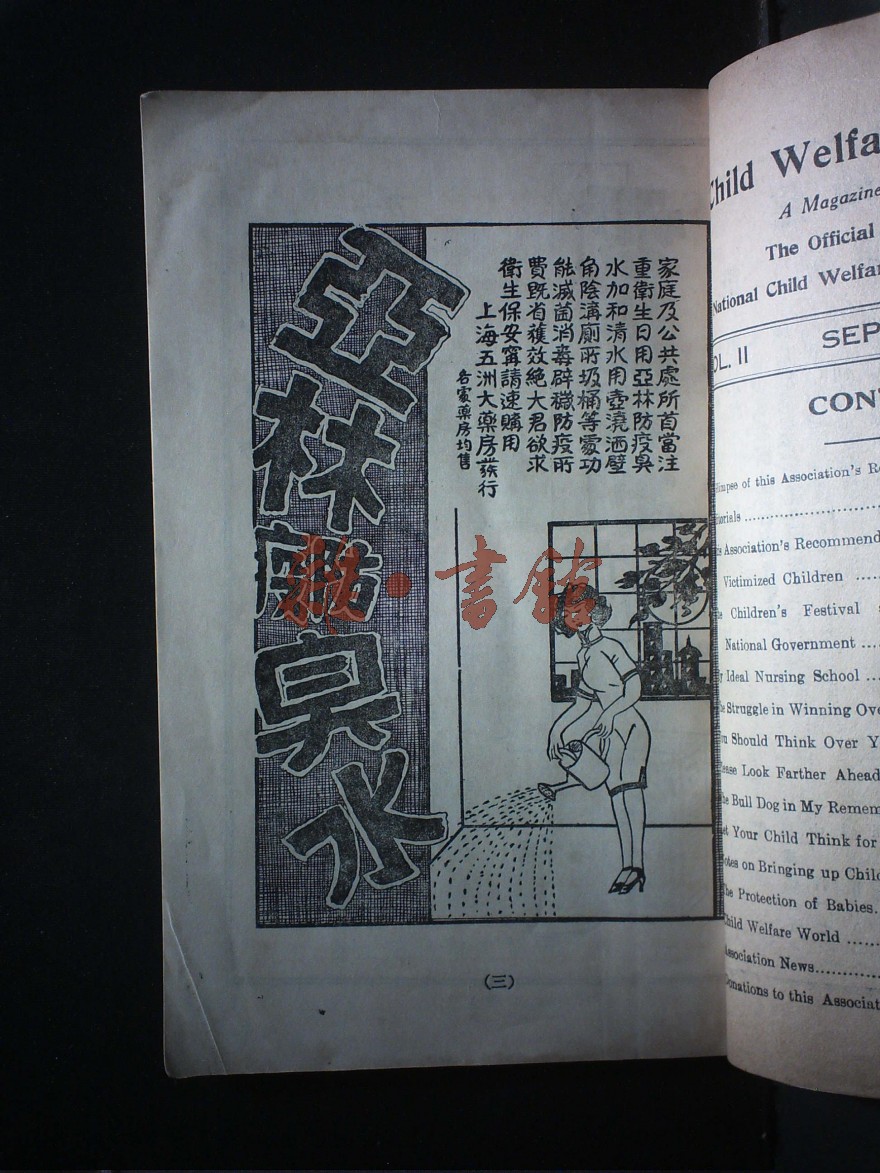 家庭及公共處所首當注
重衛生日用亞林防疫臭
水加和清水用壺澆洒壁
角陰溝廁所圾桶等處功
能滅菌消毒辟穢防疫所
費既省獲效絕大君欲求
衛生保安寧請速購用
上海五洲大藥房發行
各處藥房均售
亞林防疫臭水
雜·書館
(三)
Child
A Magazine
The Official
National Child
VOL. II
of this Association's
Association's
Victimized Children
Children's Festival
National Government
Ideal Nursing School
Struggle in Winning
Should Think Over
Look Farther Ahead
Bull Dog in My
Your Child Think for
on Bringing up
Protection of Babies
Child Welfare World
Association News
Donations to this